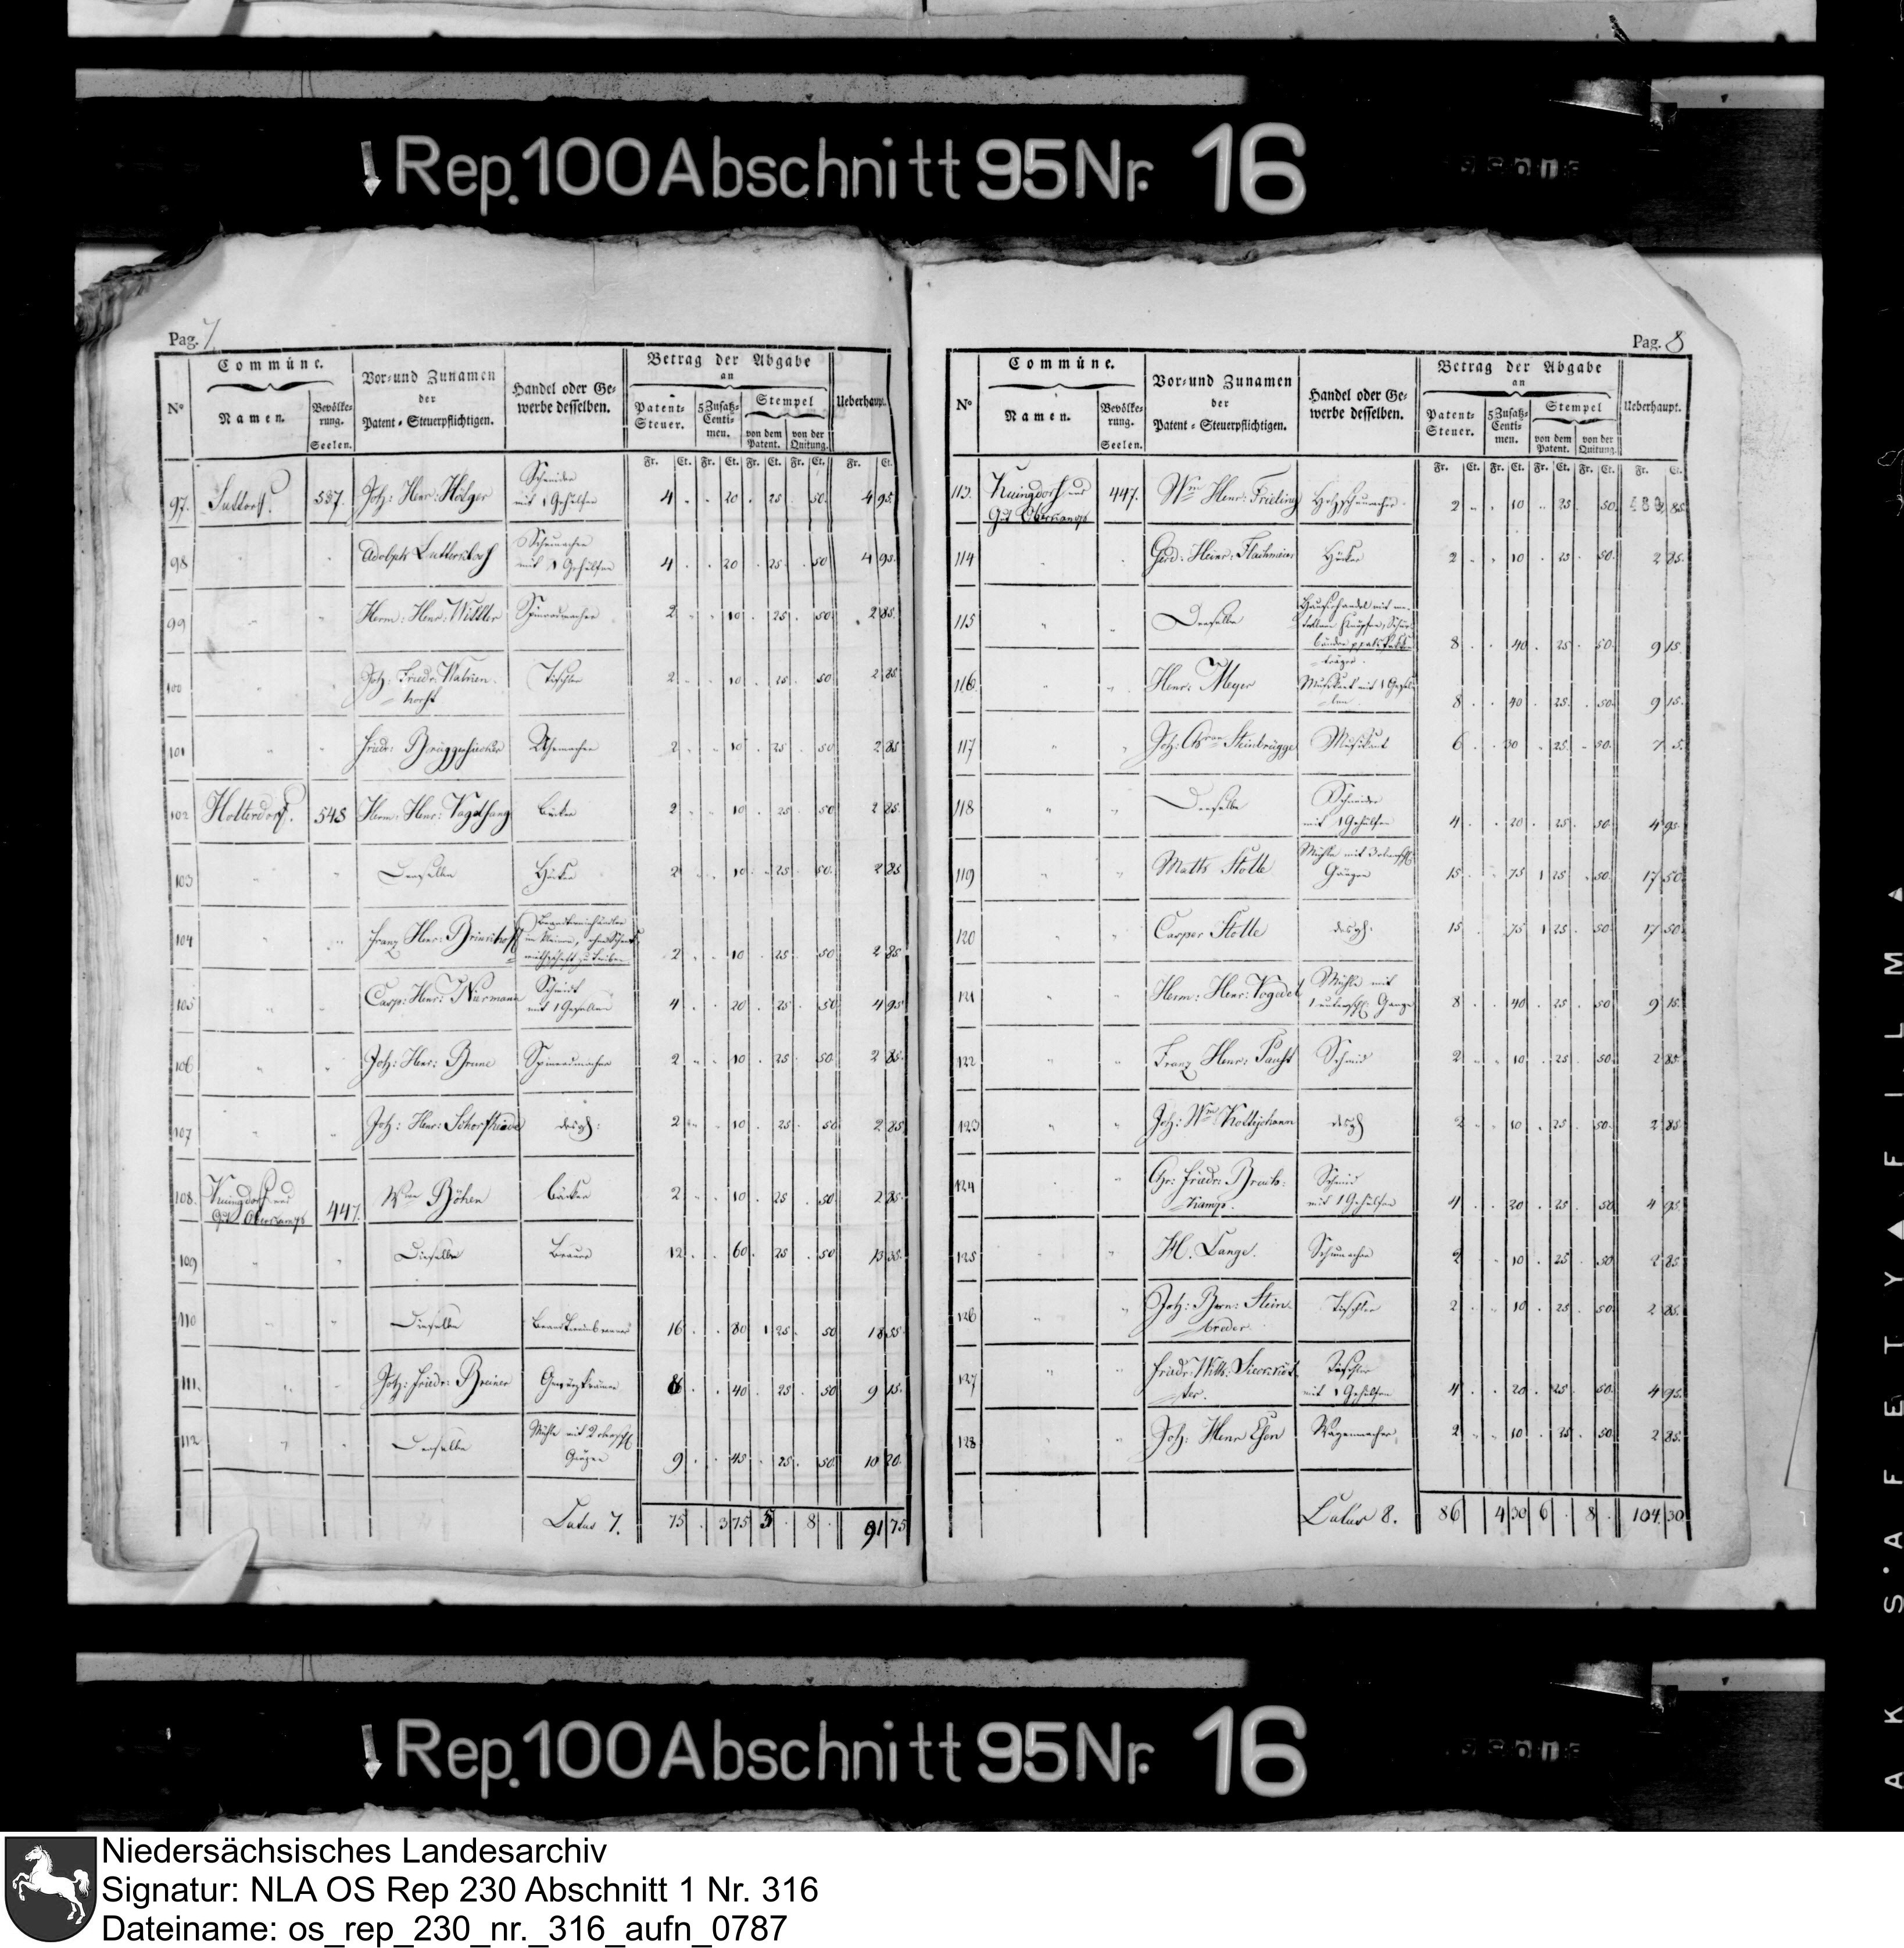 Rep. 100 Abschnitt 95 Nr. 16
Pag. 7
Commüne.
Vor- und Zunamen der Patent-Steuerpflichtigen.
Handel oder Gewerbe desselben.
Betrag der Abgabe an
Ueberhaupt.
N° Namen. Bevölkerung. Seelen. Patent-Steuer. 5 Zusatz-Centimen. Stempel von dem Patent. von der Quitung.
Fr. Ct. Fr. Ct. Fr. Ct. Fr. Ct. Fr. Ct.
97. Suttorf. 537. Joh: Henr: Hölger Schneider mit 1 Gehülfen 4 20 25 50 4 95
98 Adolph Luttersdorf Schumacher mit 1 Gehülfen 4 20 25 50 4 95
99 Herm: Henr: Spinradmacher 2 10 25 50 2 85
100 Joh: Friedr: Tischler 2 10 25 50 2 85
101 Friedr: Brüggeshemke 2 10 25 50 2 85
102 Holterdorf. 548 Herm: Henr: Vagthang Bäcker 2 10 25 50 2 85
103 Derselbe Höcker 2 10 25 50 2 85
104 Franz Henr: Brinkhoff 2 10 25 50 2 85
105 Casp: Henr: Niermann Schmidt mit 1 Gesellen 4 20 25 50 4 95
106 Joh: Henr: Brune Spinradmacher 2 10 25 50 2 85
107 Joh: Henr: desgl: 2 10 25 50 2 85
108. Küingdorf und Gut Oberkamp 447. Wwe Böhen Bäcker 2 10 25 50 2 85
109 Dieselbe Brauer 12 60 25 50 13 35
110 Dieselbe Brandtweinbrenner 16 80 1 25 50 18 55
111. Joh: Friedr: Breiner Gewürzkrämer 8 40 25 50 9 15
112 Derselbe Mühle mit 2 oberschl. Gängen 9 45 25 50 10 20
Latus 7. 75 3 75 5 8 91 75
Pag. 8
Commüne.
Vor- und Zunamen der Patent-Steuerpflichtigen.
Handel oder Gewerbe desselben.
Betrag der Abgabe an
Ueberhaupt.
N° Namen. Bevölkerung. Seelen. Patent-Steuer. 5 Zusatz-Centimen. Stempel von dem Patent. von der Quitung.
Fr. Ct. Fr. Ct. Fr. Ct. Fr. Ct. Fr. Ct.
113. Küingdorf und Gut Oberkamp 447. Wm Henr: Frieling Holzschumacher 2 10 25 50 2 85
114 Gerd: Heinr: Höcker 2 10 25 50 2 85
115 Derselbe 8 40 25 50 9 15
116 Henr: Meyer Musikant mit 1 Gesellen 8 40 25 50 9 15
117 Joh: Steinbrügge Musikant 6 30 25 50 7 5
118 Derselbe Schneider mit 1 Gehülfen 4 20 25 50 4 95
119 Matts Stolle Mühle mit 3 oberschl. Gängen 15 75 1 25 50 17 50
120 Casper Stolle desgl. 15 75 1 25 50 17 50
121 Herm: Henr: Vogedel Mühle mit 1 unterschl. Gange 8 40 25 50 9 15
122 Franz Henr: Schmid 2 10 25 50 2 85
123 Joh: Wm Koltijohann desgl 2 10 25 50 2 85
124 Chr: Friedr: Breitkamp. Schmid mit 1 Gehülfen 4 20 25 50 4 95
125 H. Lange. Schumacher 2 10 25 50 2 85
126 Joh: Bern: Steinbreder. Tischler 2 10 25 50 2 85
127 Friedr: Wilh: Tischler mit 1 Gehülfen 4 20 25 50 4 95
128 Joh: Henr Wagenmacher 2 10 25 50 2 85
Latus 8. 86 4 30 6 8 104 30
Rep. 100 Abschnitt 95 Nr. 16
AK S.A F E T Y ▲ F I L M ▲
Niedersächsisches Landesarchiv
Signatur: NLA OS Rep 230 Abschnitt 1 Nr. 316
Dateiname: os_rep_230_nr._316_aufn_0787